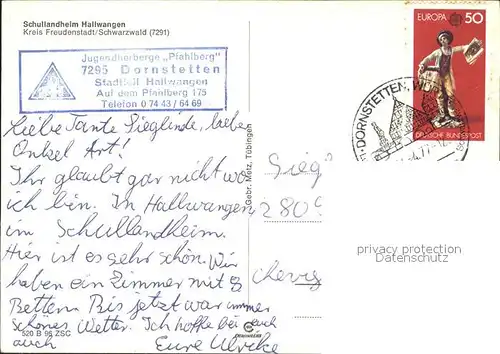 Schullandheim Hallwangen
Kreis Freudenstadt/Schwarzwald (7291)
Jugendherberge „Pfahlberg"
7295 Dornstetten
Stadtteil Hallwangen
Auf dem Pfahlberg 175
Telefon 0 74 43 / 64 69
Liebe Tante Sieglinde, lieber
Onkel Art!
Ihr glaubt gar nicht wo
ich bin. In Hallwangen
im Schullandheim.
Hier ist es sehr schön. Wir
haben ein Zimmer mit 8
Betten. Bis jetzt war immer
schönes Wetter. Ich hoffe bei euch
auch
Eure Ulrike
520 B 96 ZSC
Gebr. Metz, Tübingen
EUROPA CEPT 50
DEUTSCHE BUNDESPOST
DORNSTETTEN, WÜRTT
Sieg
2809
privacy protection
(Datenschutz)